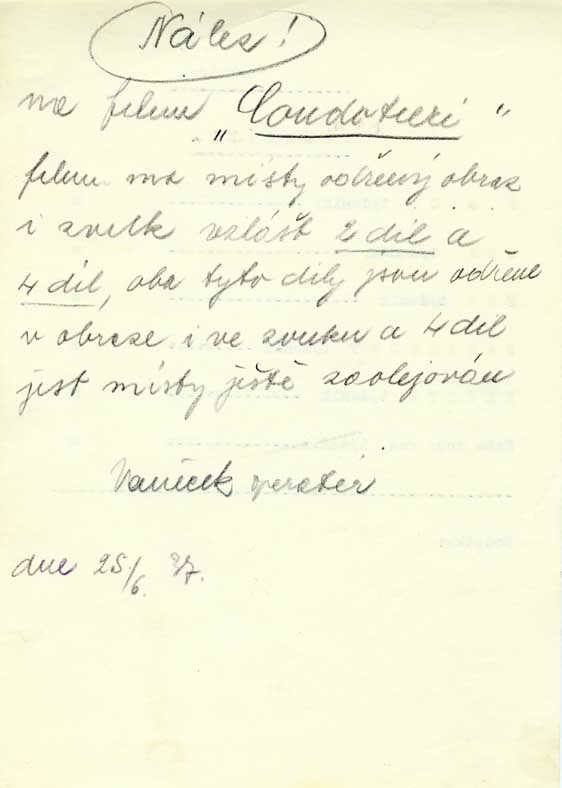 Nález!
na film „Condotieri“
film ma místy odřený obraz
i zvuk vzlášt 2 díl a
4 díl, oba tyto díly jsou odřené
v obraze i ve zvuku a 4 díl
jest místy ještě zaolejován
Vaníček operatér
dne 25/6. 37.